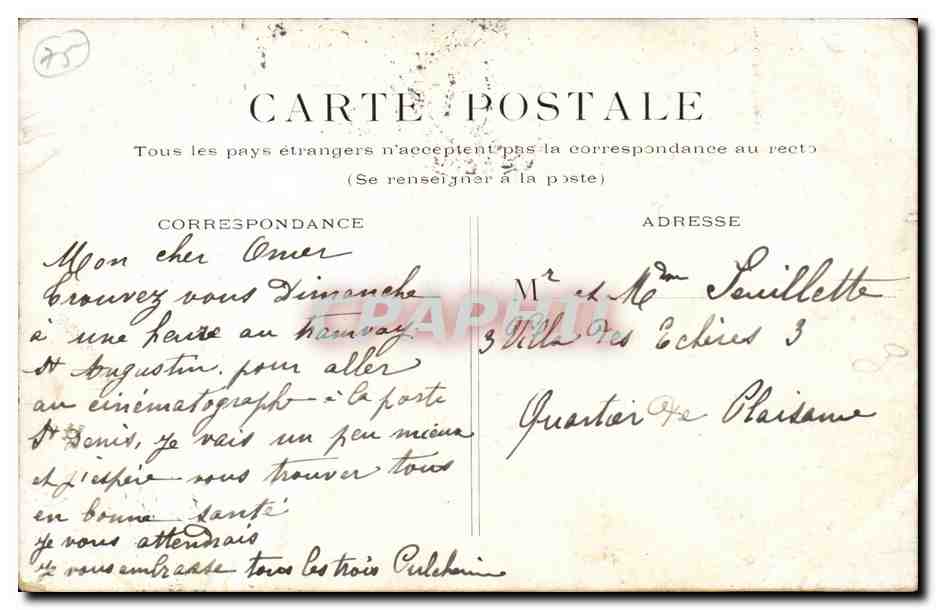 75
CARTE POSTALE
Tous les pays étrangers n'acceptent pas la correspondance au recto
(Se renseigner à la poste)
CORRESPONDANCE
Mon cher Omer
trouvez vous Dimanche
à une heure au tramway
St Augustin pour aller
au cinématographe à la porte
St Denis, je vais un peu mieux
et j'espère vous trouver tous
en bonne santé
je vous attendrais
je vous embrasse tous les trois Pulcherie
ADRESSE
Mr et Mdm Feuillette
3 Villa des Echères 3
Quartier de Plaisance
CPAPHIL